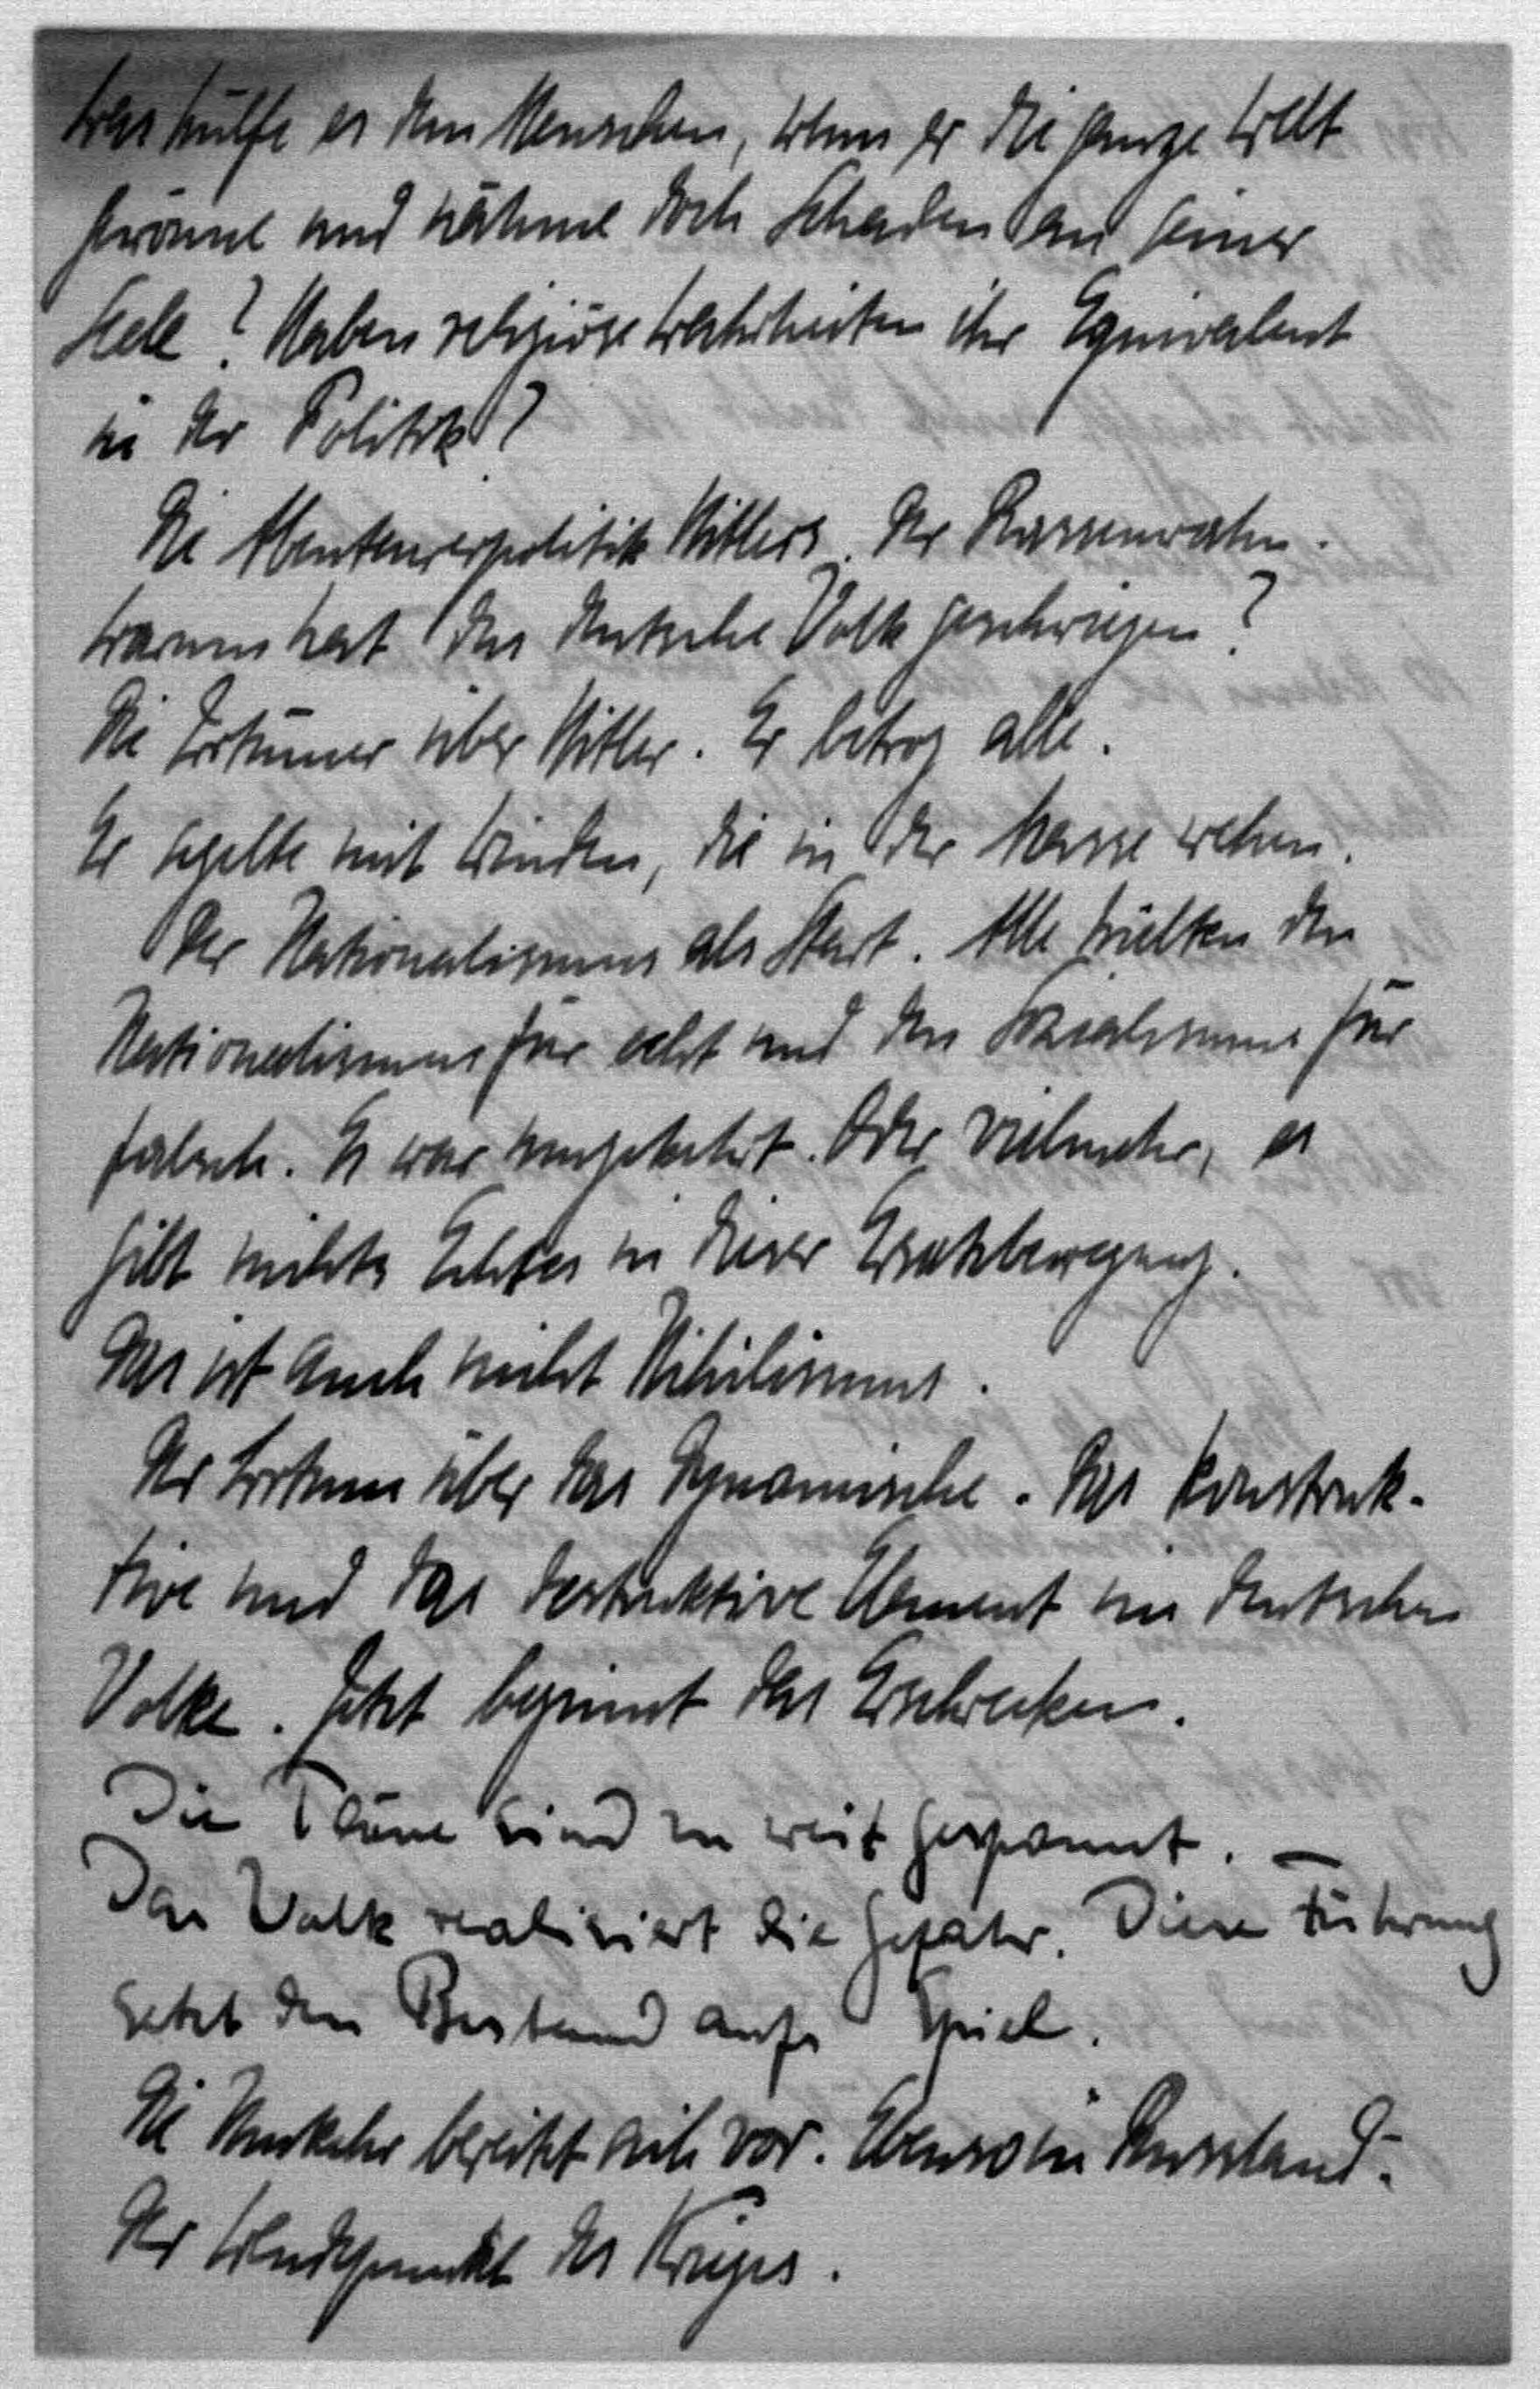 Was hülfe es dem Menschen, wenn er die ganze Welt
gewönne und nähme doch Schaden an seiner
Seele? Haben religiöse Wahrheiten ihr Equivalent
in der Politik?
Die Abenteurerpolitik Hitlers. Der Rassenwahn.
Warum hat das deutsche Volk geschwiegen?
Die Irrtümer über Hitler. Er betrog alle.
Er segelte mit Winden, die in der Masse wehen.
Der Nationalismus als Start. Alle hielten den
Nationalismus für echt und den Sozialismus für
falsch. Es war umgekehrt. Oder vielmehr, es
gibt nichts Echtes in dieser Ersatzbewegung.
Das ist auch nicht Nihilismus.
Der Irrtum über das Dynamische. Das konstruk-
tive und das destruktive Element im deutschen
Volke. Jetzt beginnt das Erschrecken.
Die Pläne sind zu weit gespannt. –
Das Volk realisiert die Gefahr. Diese Führung
setzt den Bestand aufs Spiel.
Die Umkehr bereitet sich vor. Ebenso in Russland.
Der Wendepunkt des Krieges.